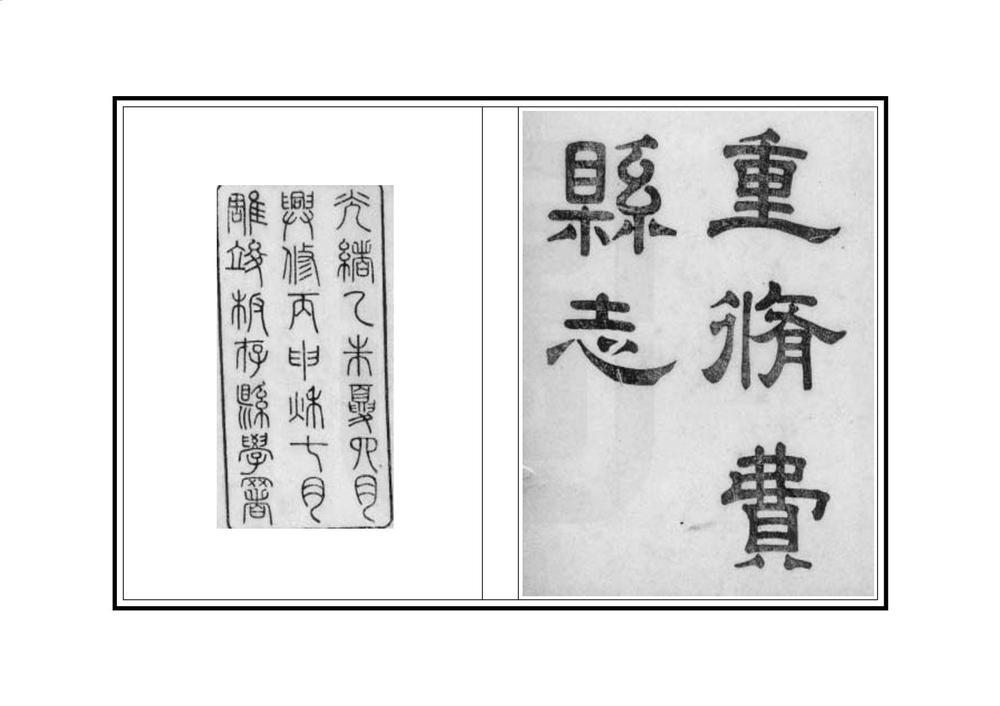 重脩費
縣志
光緒乙未夏四月
興修丙申秋七月
雕竣板存縣學署